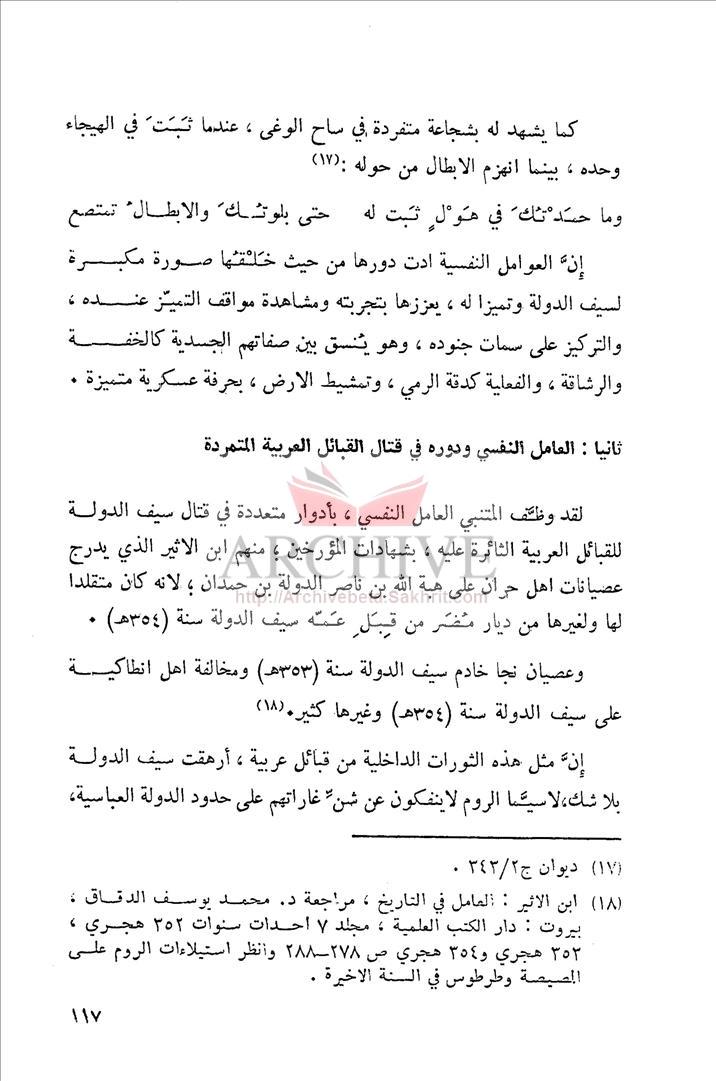 كما يشهد له بشجاعة متفردة في ساح الوغى ، عندما ثَبَتَ في الهيجاء
وحده ، بينما انهزم الابطال من حوله :(١٧)
وما حمدْتُكَ في هَوْلٍ ثَبت له حتى بلوتُكَ والابطالُ تمتصع
إنَّ العوامل النفسية ادت دورها من حيث خَلْقُها صورة مكبرة
لسيف الدولة وتميزا له ، يعززها بتجربته ومشاهدة مواقف التميّز عنده ،
والتركيز على سمات جنوده ، وهو يُنسق بين صفاتهم الجسدية كالخفة
والرشاقة ، والفعلية كدقة الرمي ، وتمشيط الارض ، بحرفة عسكرية متميزة .
ثانيا : العامل النفسي ودوره في قتال القبائل العربية المتمردة
لقد وظَّف المتنبي العامل النفسي ، بأدوار متعددة في قتال سيف الدولة
للقبائل العربية الثائرة عليه ، بشهادات المؤرخين ، منهم ابن الاثير الذي يدرج
عصيانات اهل حران على هبة الله بن ناصر الدولة بن حمدان ، لانه كان متقلدا
لها ولغيرها من ديار مُضَر من قِبَلِ عَمّه سيف الدولة سنة (٣٥٤هـ) .
وعصيان نجا خادم سيف الدولة سنة (٣٥٣هـ) ومخالفة اهل انطاكية
على سيف الدولة سنة (٣٥٤هـ) وغيرها كثير.(١٨)
إنَّ مثل هذه الثورات الداخلية من قبائل عربية ، أرهقت سيف الدولة
بلا شك،لاسيَّما الروم لاينفكون عن شنَّ غاراتهم على حدود الدولة العباسية،
(١٧) ديوان ج٢/٣٤٣ .
(١٨) ابن الاثير : الكامل في التاريخ ، مراجعة د. محمد يوسف الدقاق ،
بيروت : دار الكتب العلمية ، مجلد ٧ احداث سنوات ٣٥٢ هجري ،
٣٥٣ هجري و٣٥٤ هجري ص ٢٧٨–٢٨٨ وانظر استيلاءات الروم على
المصيصة وطرطوس في السنة الاخيرة .
١١٧
ARCHIVE
http://Archivebeta.Sakhrit.com